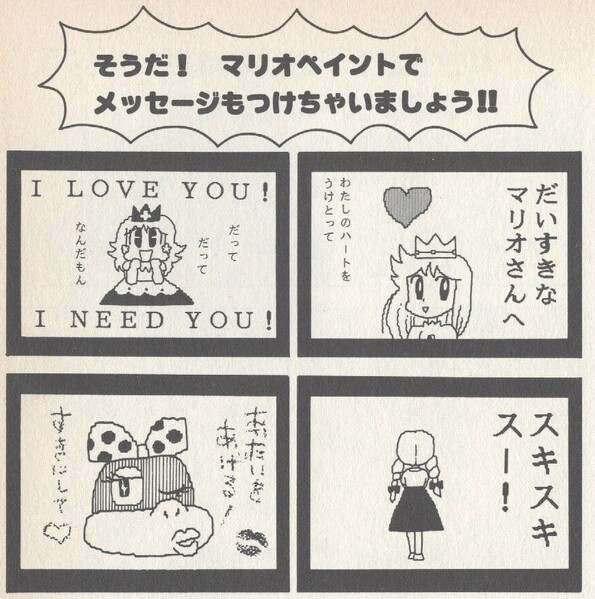 そうだ！　マリオペイントで
メッセージもつけちゃいましょう!!
だいすきな
マリオさんへ
わたしのハートを
うけとって
I LOVE YOU!
だって
だって
なんだもん
I NEED YOU!
スキスキ
スー！